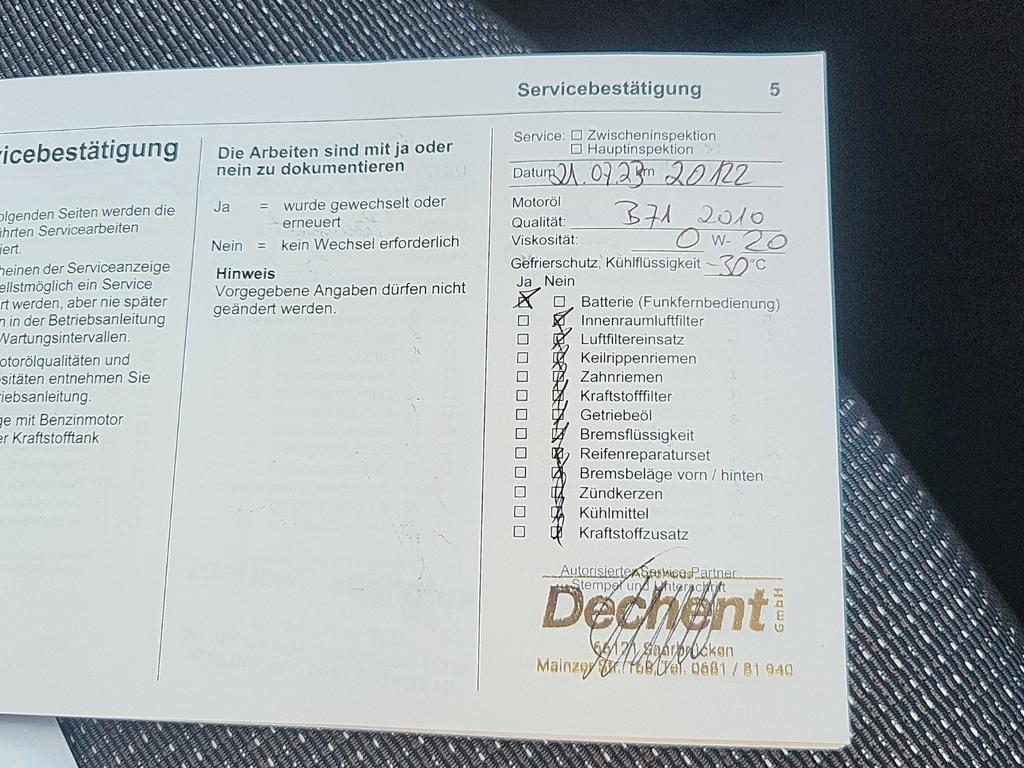 Servicebestätigung 5
vicebestätigung
olgenden Seiten werden die
hrten Servicearbeiten
iert.
heinen der Serviceanzeige
ellstmöglich ein Service
rt werden, aber nie später
n in der Betriebsanleitung
Wartungsintervallen.
otorölqualitäten und
ositäten entnehmen Sie
riebsanleitung.
ge mit Benzinmotor
er Kraftstofftank
Die Arbeiten sind mit ja oder
nein zu dokumentieren
Ja = wurde gewechselt oder
erneuert
Nein = kein Wechsel erforderlich
Hinweis
Vorgegebene Angaben dürfen nicht
geändert werden.
Service: Zwischeninspektion
Hauptinspektion
Datum 21.07.23 km 20122
Motoröl
Qualität: B71 2010
Viskosität: 0 W- 20
Gefrierschutz, Kühlflüssigkeit -30 °C
Ja Nein
Batterie (Funkfernbedienung)
Innenraumluftfilter
Luftfiltereinsatz
Keilrippenriemen
Zahnriemen
Kraftstofffilter
Getriebeöl
Bremsflüssigkeit
Reifenreparaturset
Bremsbeläge vorn / hinten
Zündkerzen
Kühlmittel
Kraftstoffzusatz
Autorisierter Service Partner
Stempel und Unterschrift
Dechent GmbH
66121 Saarbrücken
Mainzer Str. 168, Tel. 0681 / 81 940